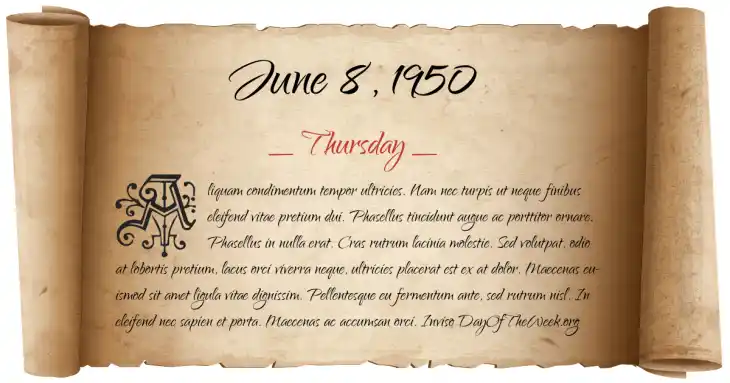 June 8, 1950
— Thursday —
Aliquam condimentum tempor ultricies. Nam nec turpis ut neque finibus
eleifend vitae pretium dui. Phasellus tincidunt augue ac porttitor ornare.
Phasellus in nulla erat. Cras rutrum lacinia molestie. Sed volutpat, odio
at lobortis pretium, lacus orci viverra neque, ultricies placerat est ex at dolor. Maecenas eu-
ismod sit amet ligula vitae dignissim. Pellentesque eu fermentum ante, sed rutrum nisl. In
eleifend nec sapien et porta. Maecenas ac accumsan orci. Inviso DayOfTheWeek.org